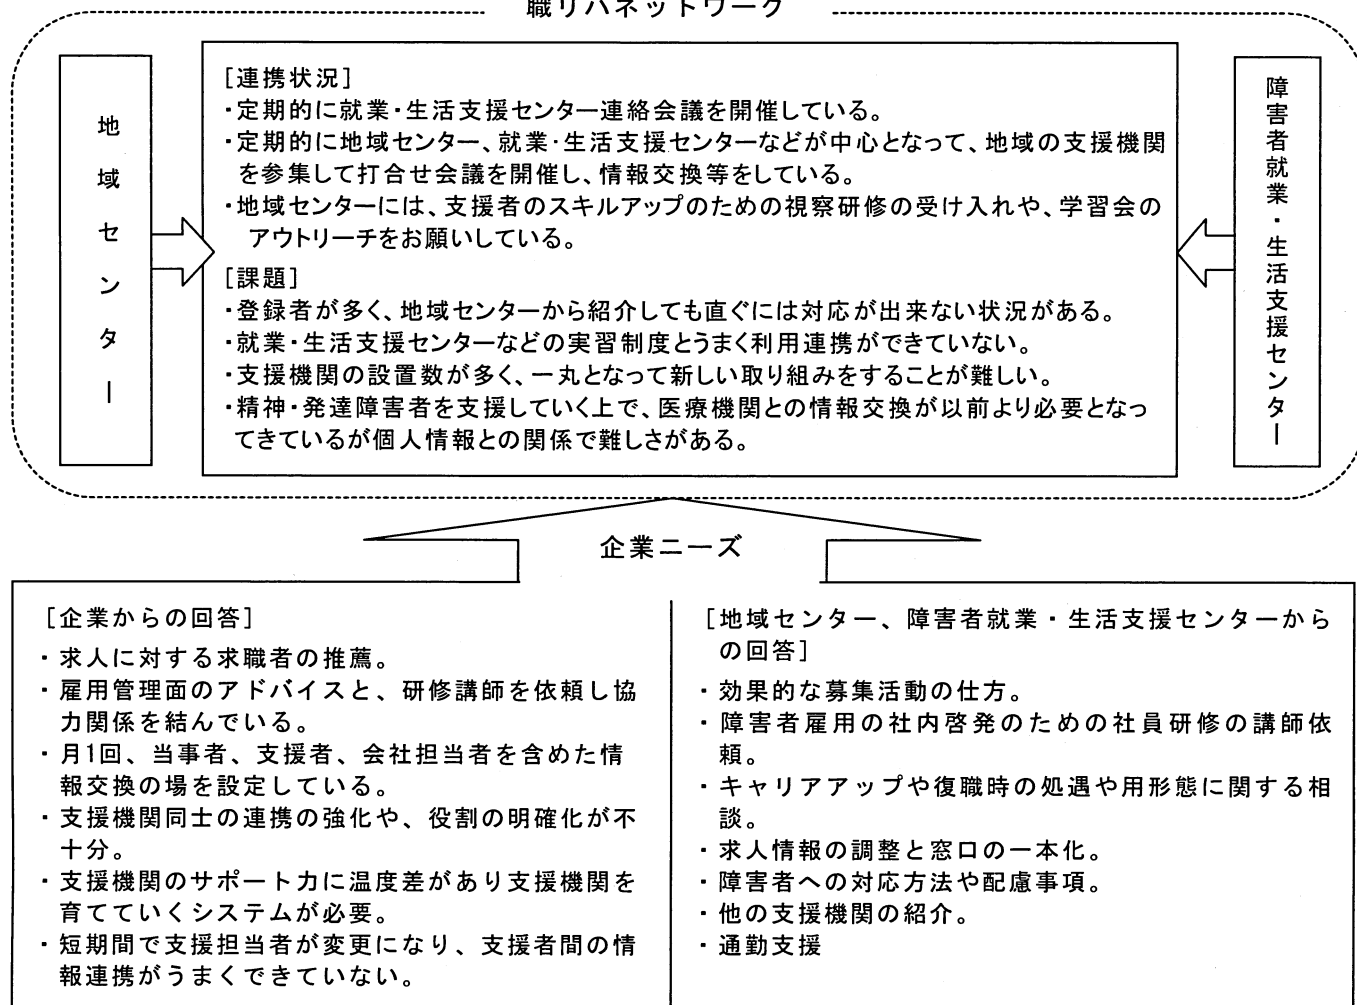 職リハネットワーク
地域センター
[連携状況]
・定期的に就業・生活支援センター連絡会議を開催している。
・定期的に地域センター、就業・生活支援センターなどが中心となって、地域の支援機関
を参集して打合せ会議を開催し、情報交換等をしている。
・地域センターには、支援者のスキルアップのための視察研修の受け入れや、学習会の
アウトリーチをお願いしている。
[課題]
・登録者が多く、地域センターから紹介しても直ぐには対応が出来ない状況がある。
・就業・生活支援センターなどの実習制度とうまく利用連携ができていない。
・支援機関の設置数が多く、一丸となって新しい取り組みをすることが難しい。
・精神・発達障害者を支援していく上で、医療機関との情報交換が以前より必要となっ
てきているが個人情報との関係で難しさがある。
障害者就業・生活支援センター
企業ニーズ
[企業からの回答]
・求人に対する求職者の推薦。
・雇用管理面のアドバイスと、研修講師を依頼し協
力関係を結んでいる。
・月1回、当事者、支援者、会社担当者を含めた情
報交換の場を設定している。
・支援機関同士の連携の強化や、役割の明確化が不
十分。
・支援機関のサポート力に温度差があり支援機関を
育てていくシステムが必要。
・短期間で支援担当者が変更になり、支援者間の情
報連携がうまくできていない。
[地域センター、障害者就業・生活支援センターから
の回答]
・効果的な募集活動の仕方。
・障害者雇用の社内啓発のための社員研修の講師依
頼。
・キャリアアップや復職時の処遇や用形態に関する相
談。
・求人情報の調整と窓口の一本化。
・障害者への対応方法や配慮事項。
・他の支援機関の紹介。
・通勤支援